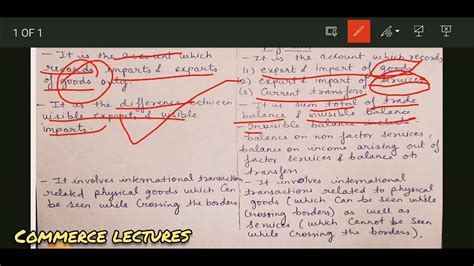 1 OF 1
- It is the account which
records imports & exports
of goods only.
- It is the difference between
visible exports & visible
imports.
- It involves international transaction
related physical goods which can
be seen while crossing the borders
- It is the account which records
(1) export & import of goods
(2) export & import of services
(3) Current transfers
- It is sum total of trade
balance & invisible balance
- Invisible balance include
balance on non factor services,
balance on income arising out of
factor services & balance on
transfers
- It involves international
transactions related to physical
goods (which can be seen while
crossing borders) as well as
services (which cannot be seen
while crossing the borders).
COMMERCE LECTURES